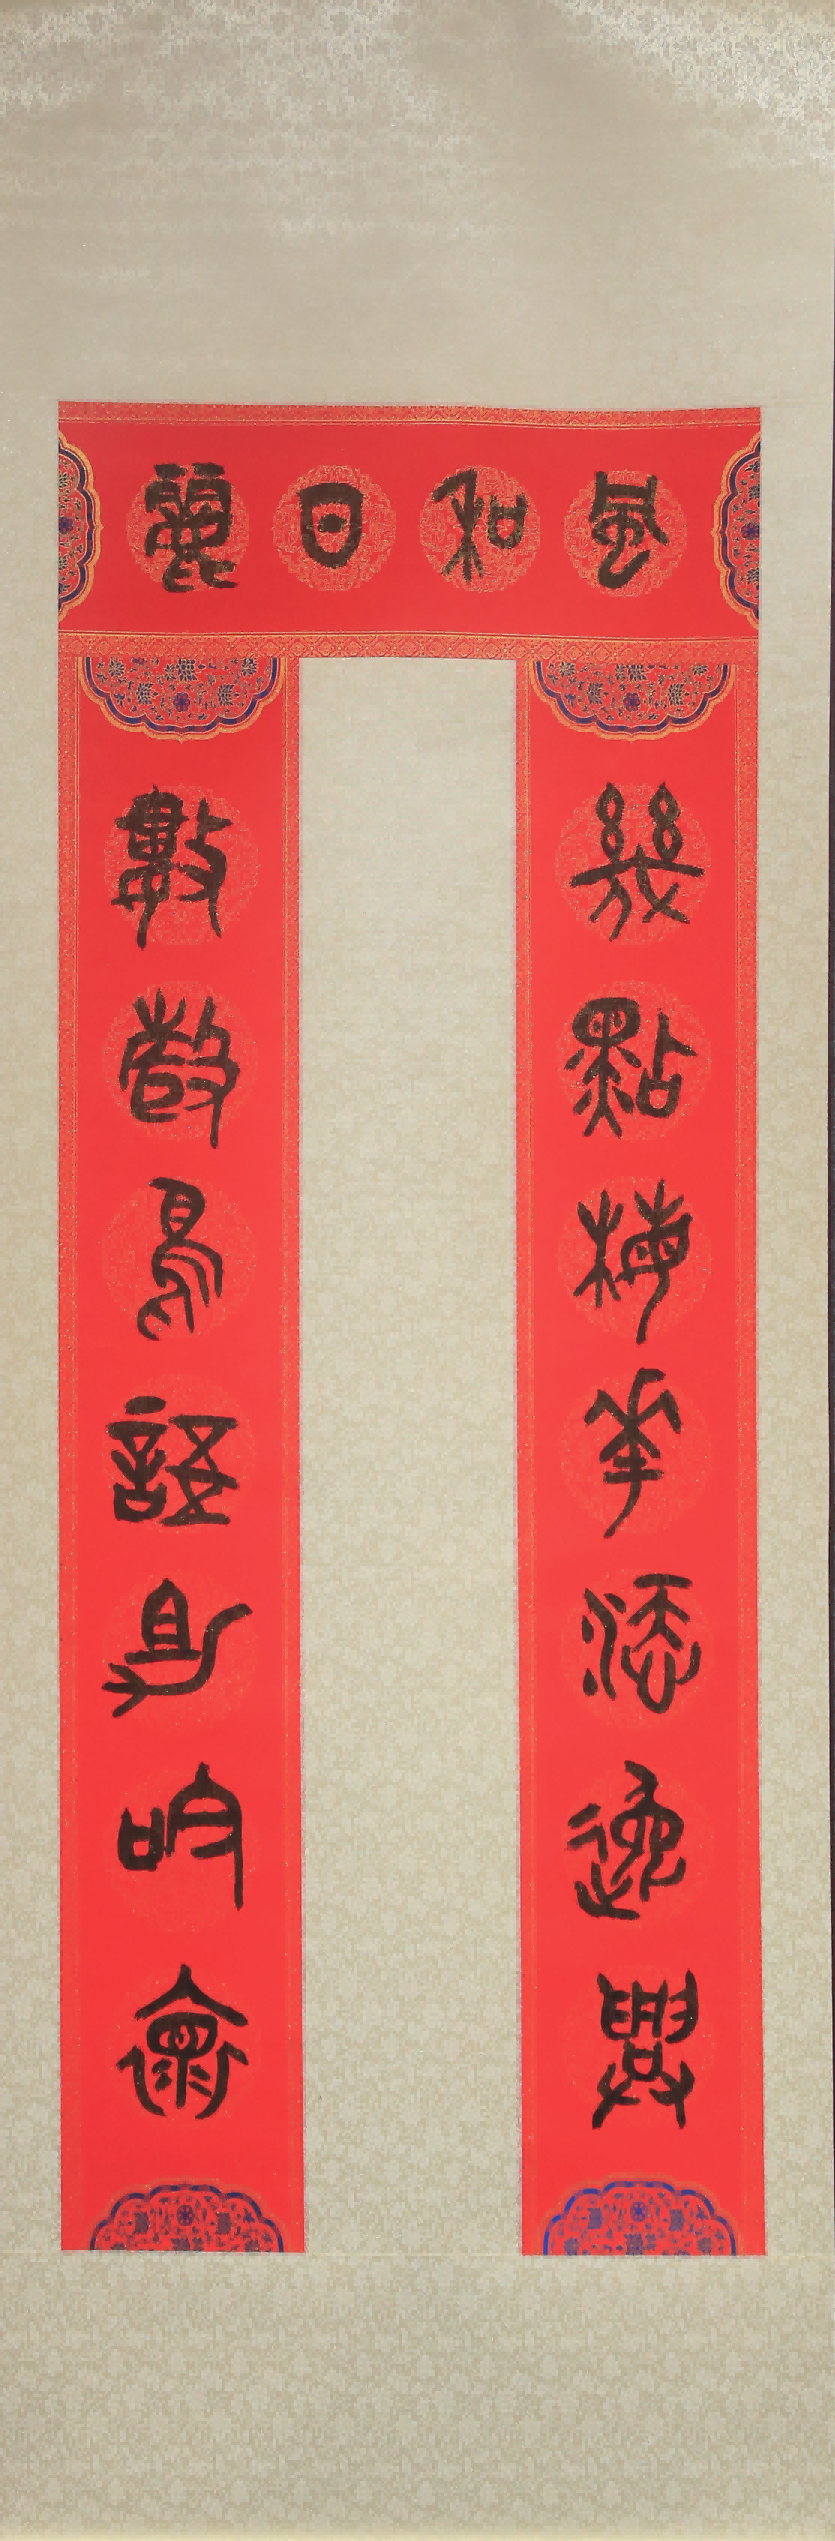 風和日麗
幾點梅花添逸興
數聲鳥語助吟懷